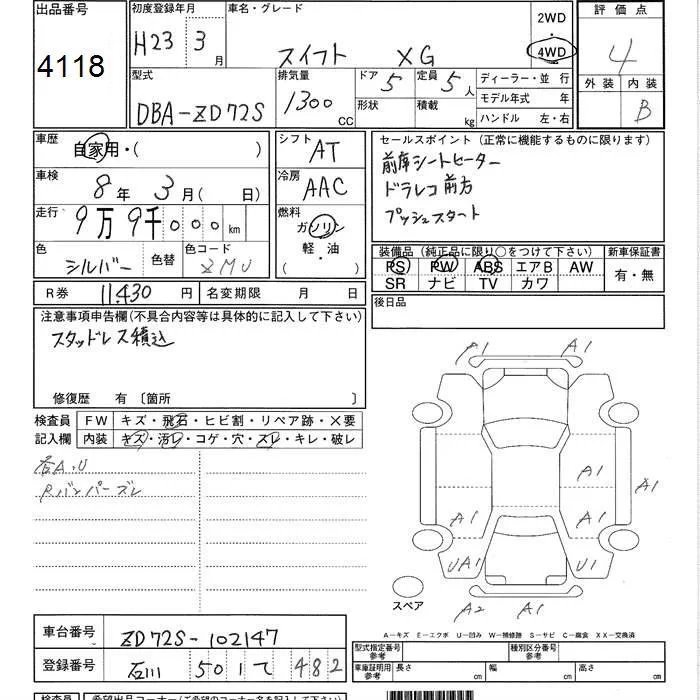 出品番号 初度登録年月 車名・グレード 2WD ・ 4WD 評価点
4118 H23 3月 スイフト XG 4
型式 排気量 ドア 5 定員 5人 ディーラー・並行 外装 内装
DBA-ZD72S 1300 CC 形状 積載 kg モデル年式 年 B
ハンドル 左・右
車歴 自家用・( ) シフト AT セールスポイント (正常に機能するものに限ります)
車検 8年 3月( 日) 冷房 AAC 前席シートヒーター
ドラレコ前方
走行 9万9千000km 燃料 ガソリン プッシュスタート
軽・油
( )
色 シルバー 色替 色コード ZMU 装備品 (純正品に限り○をつけて下さい) 新車保証書
PS PW ABS エアB AW 有・無
SR ナビ TV カワ
R券 11430 円 名変期限 月 日 後日品
注意事項申告欄(不具合内容等は具体的に記入して下さい)
スタッドレス積込
修復歴 有 〔箇所 〕
検査員 FW キズ・飛石・ヒビ割・リペア跡・×要
記入欄 内装 キズ・汚レ・コゲ・穴・スレ・キレ・破レ
各A.U
Rバンパーズレ
A1 A1
A1 A1
A1 A1
UA1 U1
A2 A1
スペア
A-キズ E-エクボ U-凹み W-補修跡 S-サビ C-腐食 XX-交換済
車台番号 ZD72S-102147
型式指定番号 参考 種別区分番号 参考
登録番号 石川 501 て 482 車庫証明用 参考 長さ cm 幅 cm 高さ cm
検査員 希望出品コーナー(ご希望のコーナー名を記入下さい)